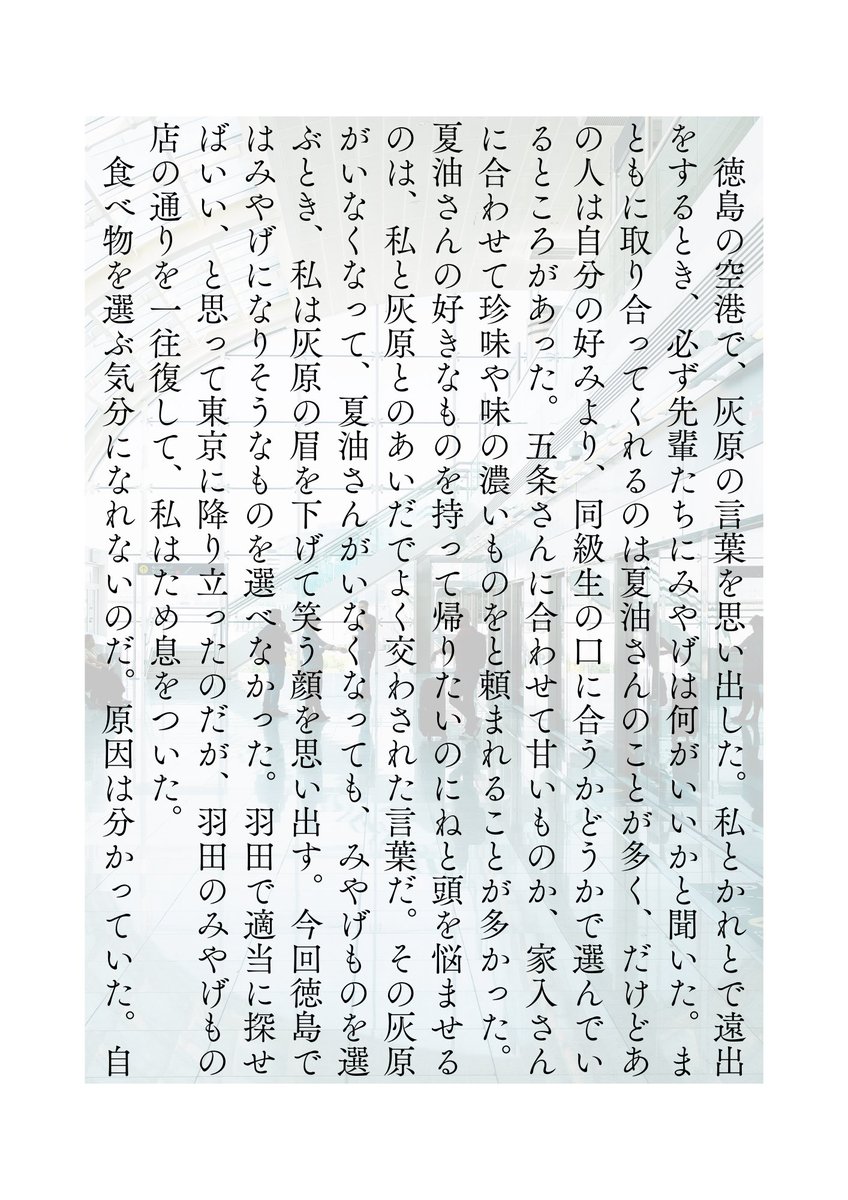 徳島の空港で、灰原の言葉を思い出した。私とかれとで遠出
をするとき、必ず先輩たちにみやげは何がいいかと聞いた。ま
ともに取り合ってくれるのは夏油さんのことが多く、だけどあ
の人は自分の好みより、同級生の口に合うかどうかで選んでい
るところがあった。五条さんに合わせて甘いものか、家入さん
に合わせて珍味や味の濃いものをと頼まれることが多かった。
夏油さんの好きなものを持って帰りたいのにねと頭を悩ませる
のは、私と灰原とのあいだでよく交わされた言葉だ。その灰原
がいなくなって、夏油さんがいなくなっても、みやげものを選
ぶとき、私は灰原の眉を下げて笑う顔を思い出す。今回徳島で
はみやげになりそうなものを選べなかった。羽田で適当に探せ
ばいい、と思って東京に降り立ったのだが、羽田のみやげもの
店の通りを一往復して、私はため息をついた。
　食べ物を選ぶ気分になれないのだ。原因は分かっていた。自